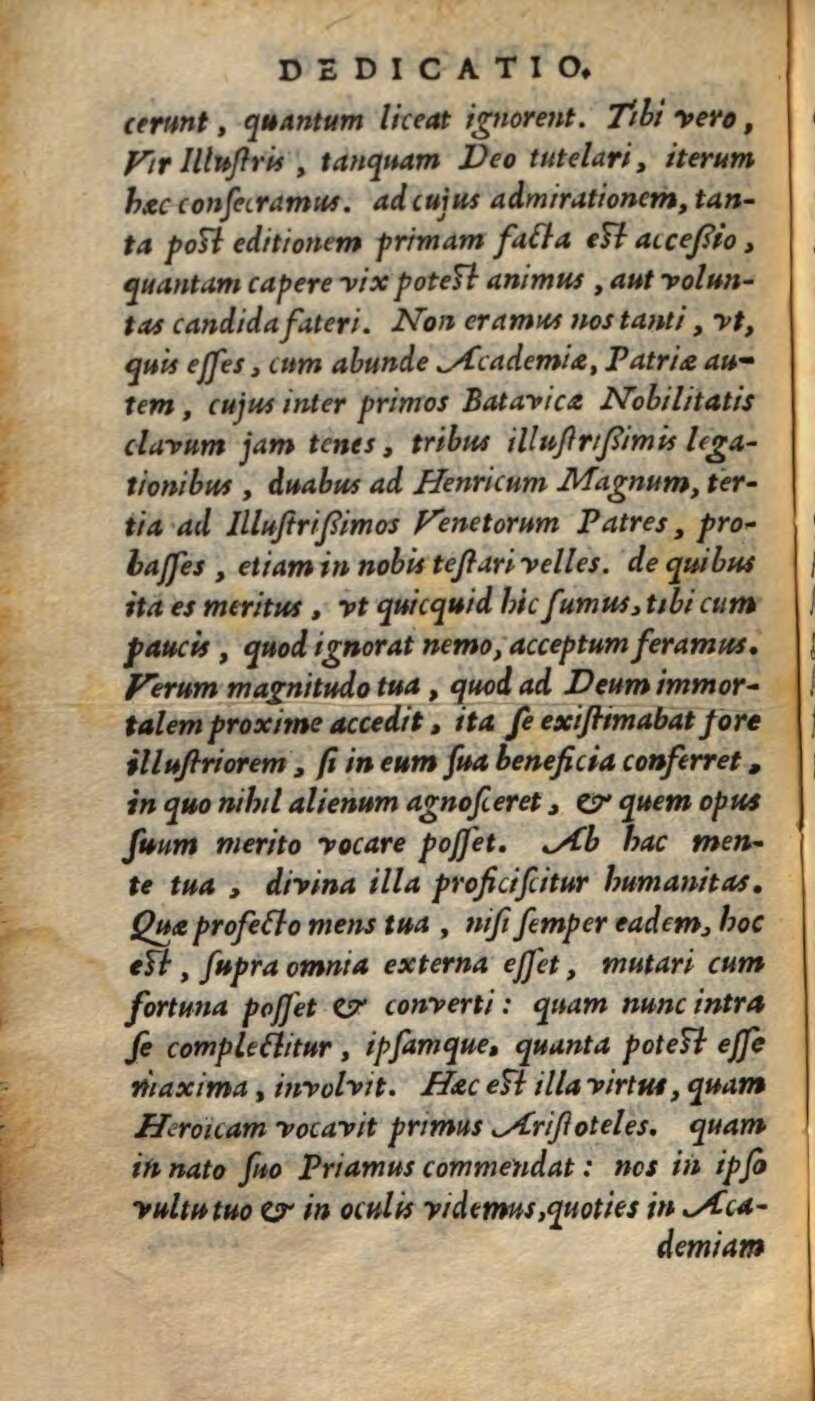 DEDICATIO.
cerunt, quantum liceat ignorent. Tibi vero,
Vir Illuſtris, tanquam Deo tutelari, iterum
hæc conſecramus. ad cujus admirationem, tan-
ta poſt editionem primam facta eſt acceſſio,
quantam capere vix poteſt animus, aut volun-
tas candida fateri. Non eramus nos tanti, vt,
quis eſſes, cum abunde Academiæ, Patriæ au-
tem, cujus inter primos Batavicæ Nobilitatis
clavum jam tenes, tribus illuſtriſſimis lega-
tionibus, duabus ad Henricum Magnum, ter-
tia ad Illuſtriſſimos Venetorum Patres, pro-
baſſes, etiam in nobis teſtari velles. de quibus
ita es meritus, vt quicquid hic ſumus, tibi cum
paucis, quod ignorat nemo, acceptum feramus.
Verum magnitudo tua, quod ad Deum immor-
talem proxime accedit, ita ſe exiſtimabat fore
illuſtriorem, ſi in eum ſua beneficia conferret,
in quo nihil alienum agnoſceret, & quem opus
ſuum merito vocare poſſet. Ab hac men-
te tua, divina illa proficiſcitur humanitas.
Quæ profecto mens tua, niſi ſemper eadem, hoc
eſt, ſupra omnia externa eſſet, mutari cum
fortuna poſſet & converti: quam nunc intra
ſe complectitur, ipſamque, quanta poteſt eſſe
maxima, involvit. Hæc eſt illa virtus, quam
Heroicam vocavit primus Ariſtoteles. quam
in nato ſuo Priamus commendat: nos in ipſo
vultu tuo & in oculis videmus, quoties in Aca-
demiam